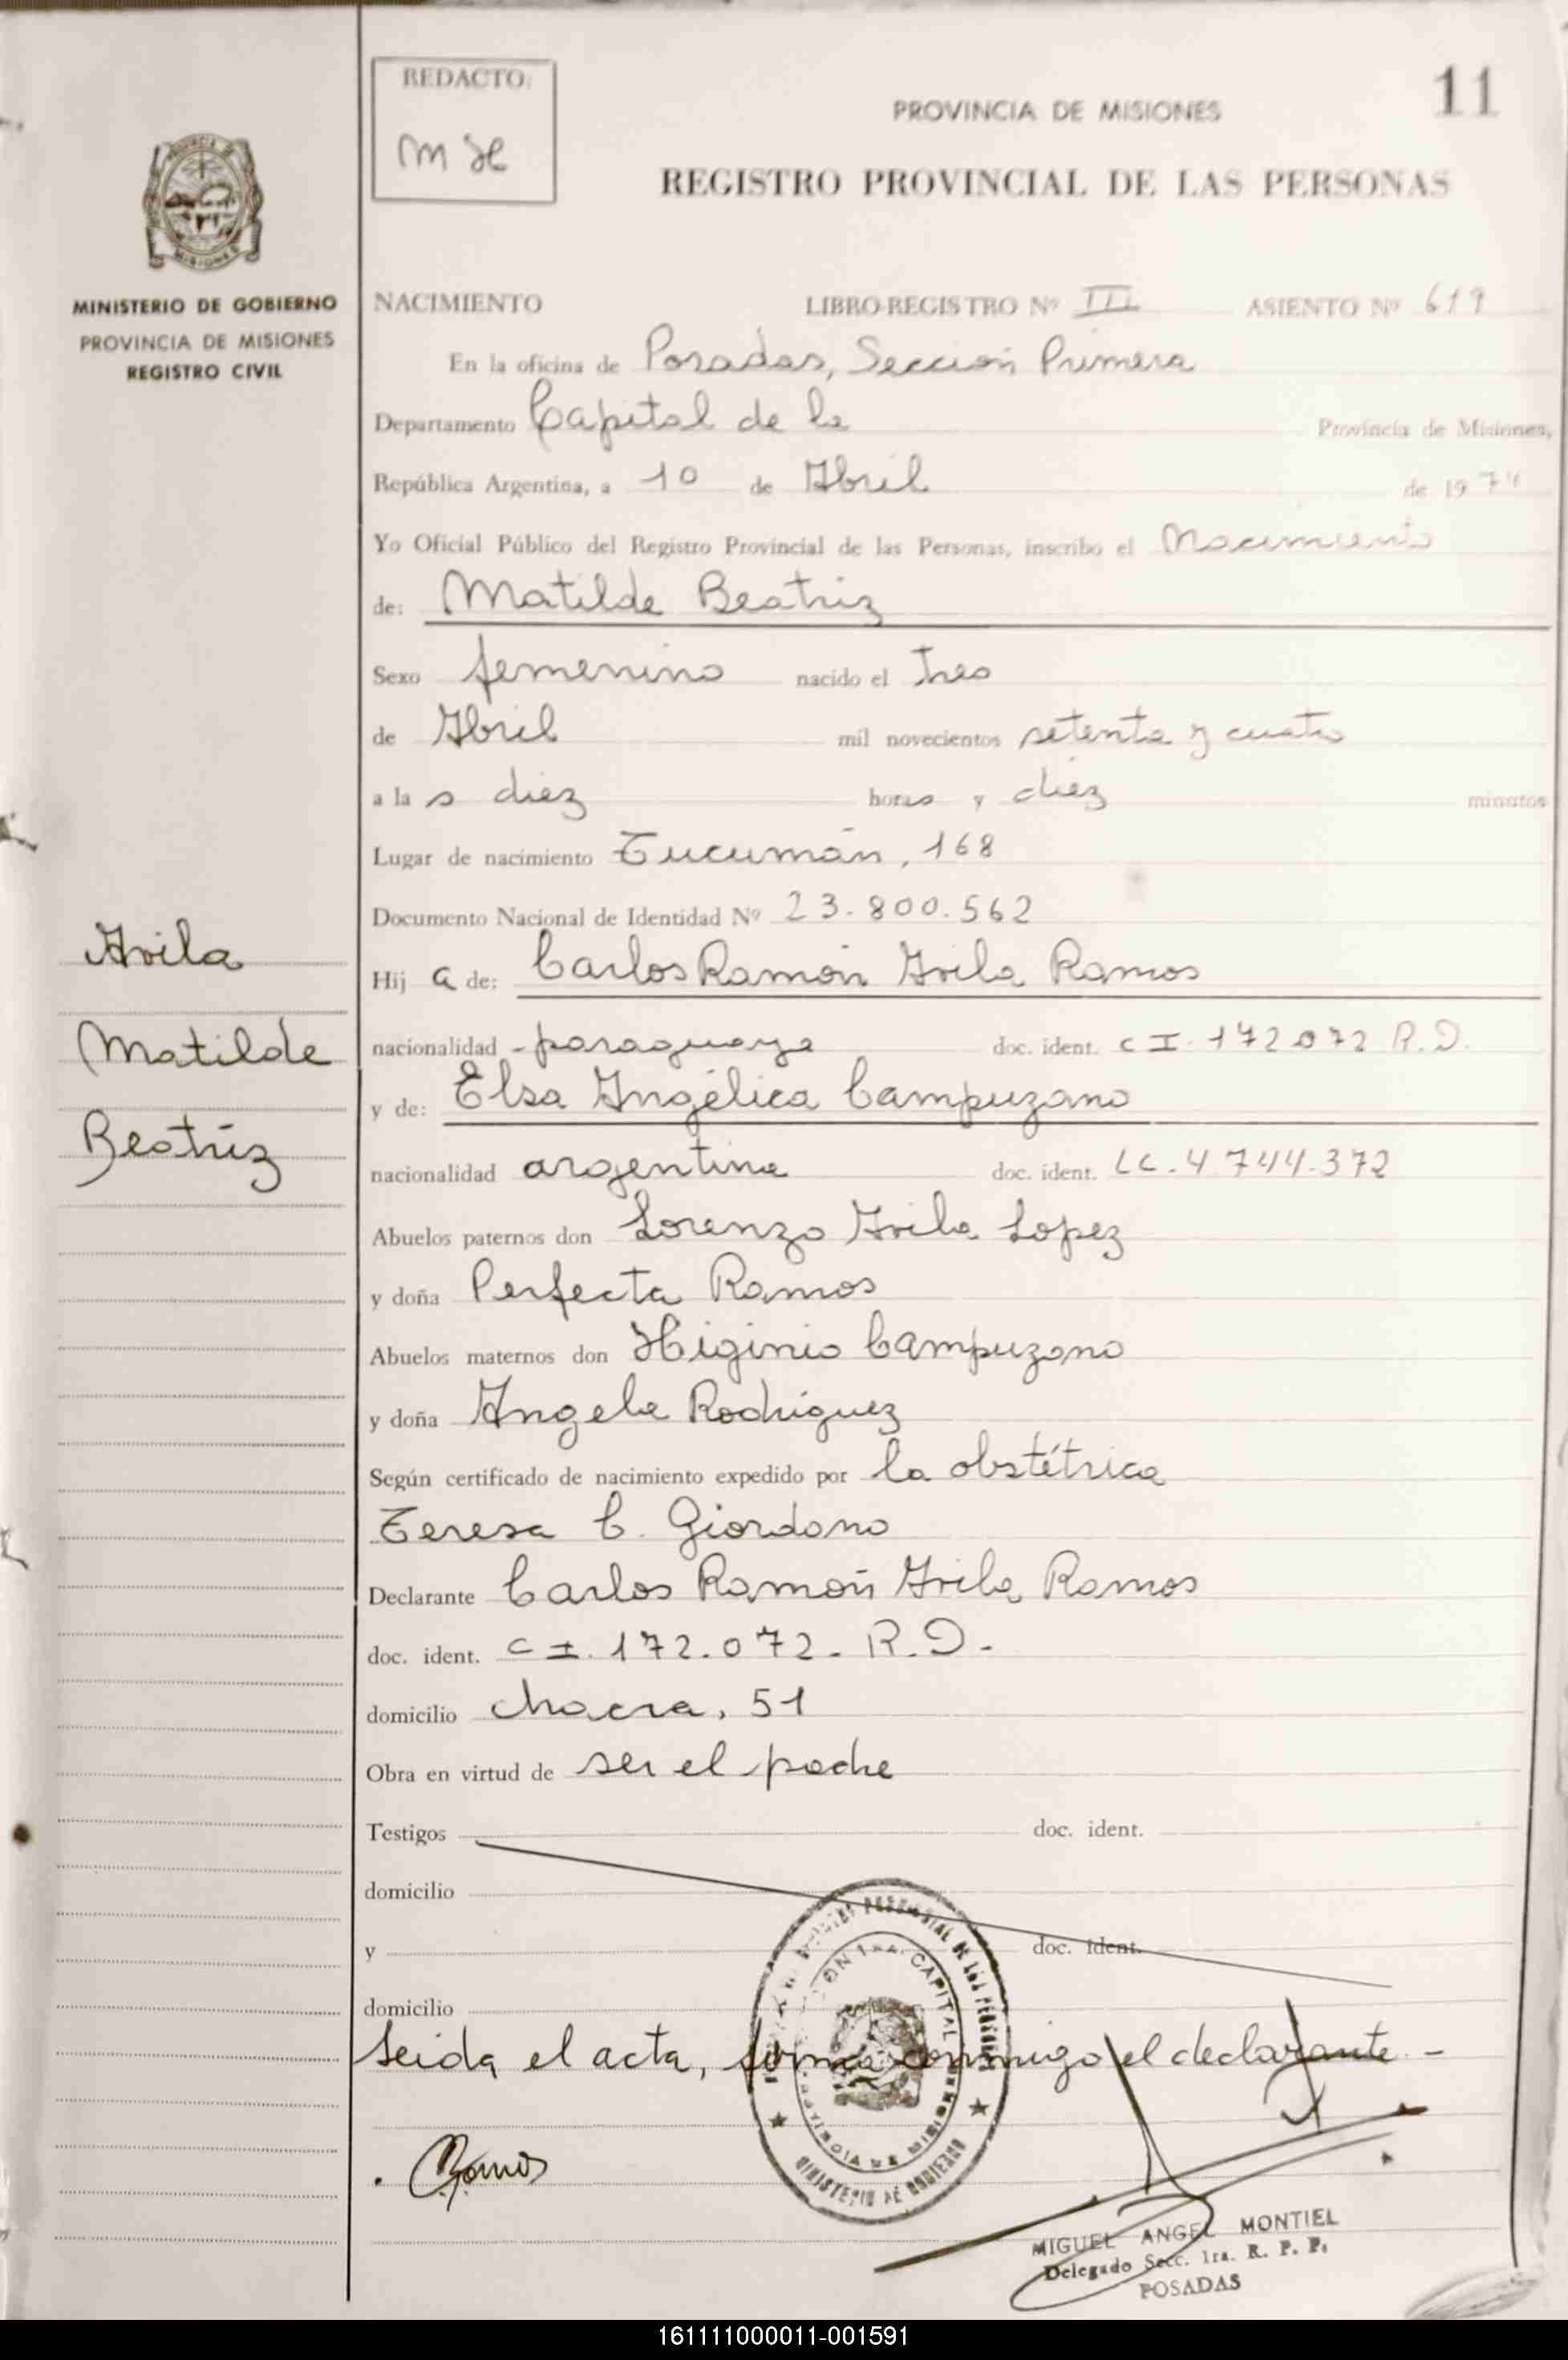 REDACTO:
PROVINCIA DE MISIONES
11
REGISTRO PROVINCIAL DE LAS PERSONAS
MINISTERIO DE GOBIERNO
PROVINCIA DE MISIONES
REGISTRO CIVIL
NACIMIENTO LIBRO-REGISTRO Nº III ASIENTO Nº 619
En la oficina de Posadas, Sección Primera
Departamento Capital de la Provincia de Misiones,
República Argentina, a 10 de Abril de 1974
Yo Oficial Público del Registro Provincial de las Personas, inscribo el Nacimiento
de: Matilde Beatriz
Sexo femenino nacido el Tres
de Abril mil novecientos setenta y cuatro
a la s diez horas y diez minutos
Lugar de nacimiento Tucumán, 168
Documento Nacional de Identidad Nº 23.800.562
Avila
Matilde
Beatriz
Hij a de: Carlos Ramón Avila Ramos
nacionalidad paraguaya doc. ident. C I. 172072 R.D.
y de: Elsa Angélica Campuzano
nacionalidad argentina doc. ident. LC. 4.744.372
Abuelos paternos don Lorenzo Avila Lopez
y doña Perfecta Ramos
Abuelos maternos don Higinio Campuzano
y doña Angela Rodríguez
Según certificado de nacimiento expedido por la obstétrica
Teresa C. Giordano
Declarante Carlos Ramón Avila Ramos
doc. ident. C I. 172.072- R.D.-
domicilio chacra, 51
Obra en virtud de ser el padre
Testigos doc. ident.
domicilio
y doc. ident.
domicilio
Leida el acta, firma conmigo el declarante.-
Ramos
MINISTERIO DE GOBIERNO
MIGUEL ANGEL MONTIEL
Delegado Secc. 1ra. R. P. P.
POSADAS
161111000011-001591